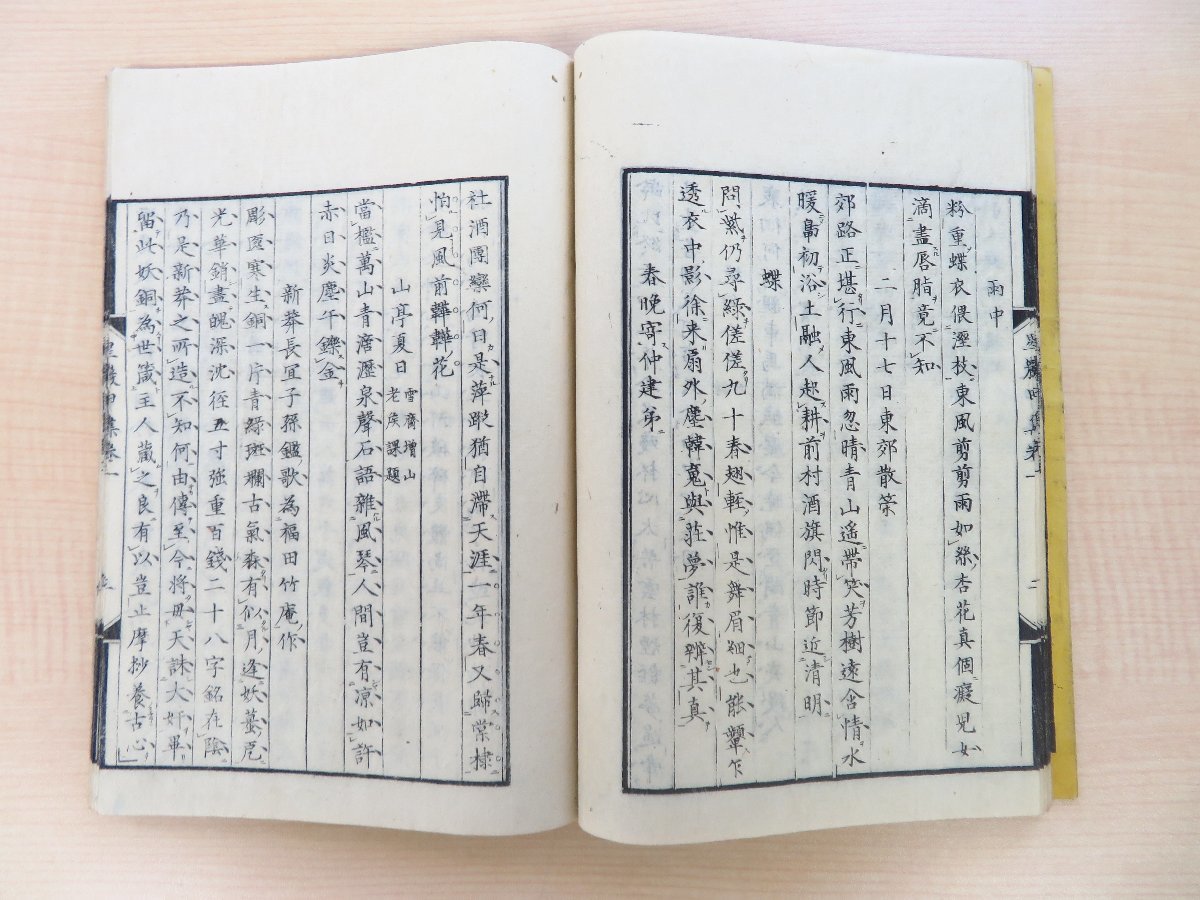 雨中
粉重蝶衣偎溼枝東風剪剪雨如絲杏花真個癡兒女
滴盡唇脂竟不知
二月十七日東郊散策
郊路正堪行東風雨忽晴青山遙帶笑芳樹遠含情水
暖鳧初浴土融人起耕前村酒旗閃時節近清明
蝶
問紫仍尋綠傞傞九十春翅輕惟是舞眉細也能顰乍
透衣中影徐来扇外塵韓寃與莊夢誰復辨其真
春晚寄仲建弟
社酒團欒何日是萍蹤猶自滯天涯一年春又歸棠棣
怕見風前韡韡花
山亭夏日
雪齋增山
老矦課題
當檻萬山青滴瀝泉聲石語雜風琴人間豈有凉如許
赤日炎塵午鑠金
新莽長宜子孫鑑歌為福田竹庵作
彫匳寒生銅一片青綠斑斕古氣森有似月逢妖蟇厄
光華銷盡魄深沈徑五寸強重百錢二十八字銘在陰
乃是新莽之所造不知何由傳至今將毋天誅大奸畢
留此妖銅為世箴主人藏之良有以豈止摩挲養古心
星巖甲集卷一
二